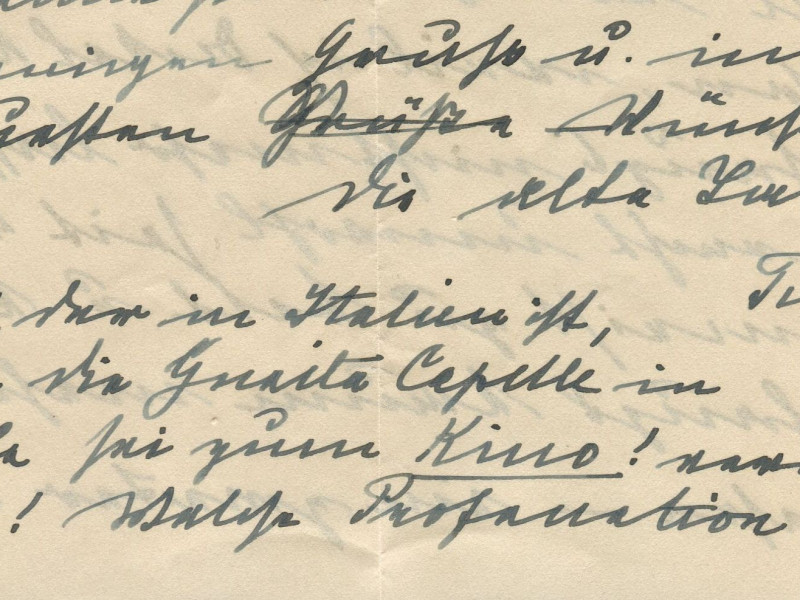 innigen Gruß u. in
uesten Grüße Wünsch
die alte
der in Italien ist,
die Guaita Capelle in
sei zum Kino! ver
! Welche Profanation